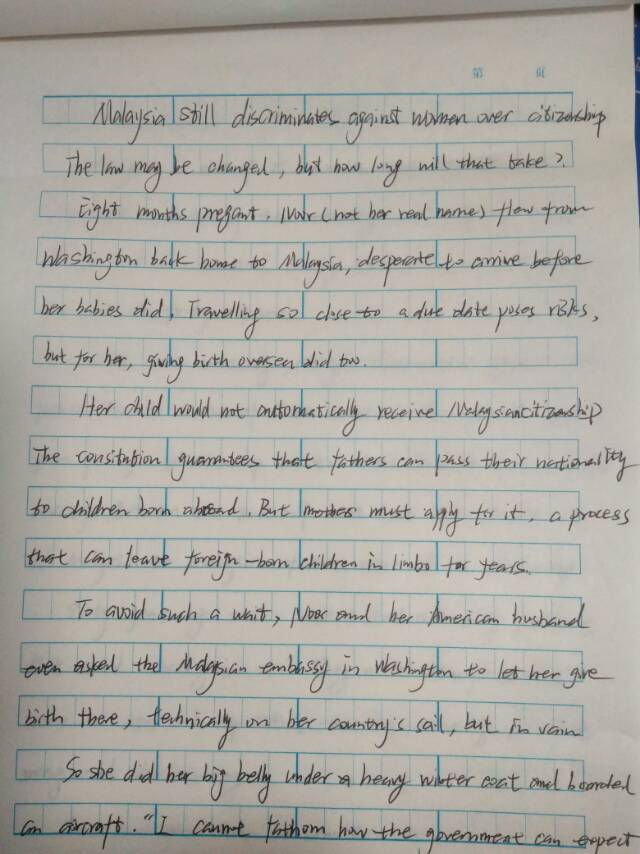 第 页
Malaysia still discriminates against women over citizenship
The law may be changed, but how long will that take?
Eight months pregant, Noor (not her real name) flew from
Washington back home to Malaysia, desperate to arrive before
her babies did. Travelling so close to a due date poses risks,
but for her, giving birth oversea did too.
Her child would not automatically receive Malaysian citizenship
The consitution guarantees that fathers can pass their nationality
to children born abroad. But mothers must apply for it, a process
that can leave foreign-born children in limbo for years.
To avoid such a wait, Noor and her American husband
even asked the Malaysian embassy in Washington to let her give
birth there, technically on her country's sail, but in vain
So she did her big belly under a heavy winter coat and boarded
an aircraft. "I cannot fathom how the government can expect